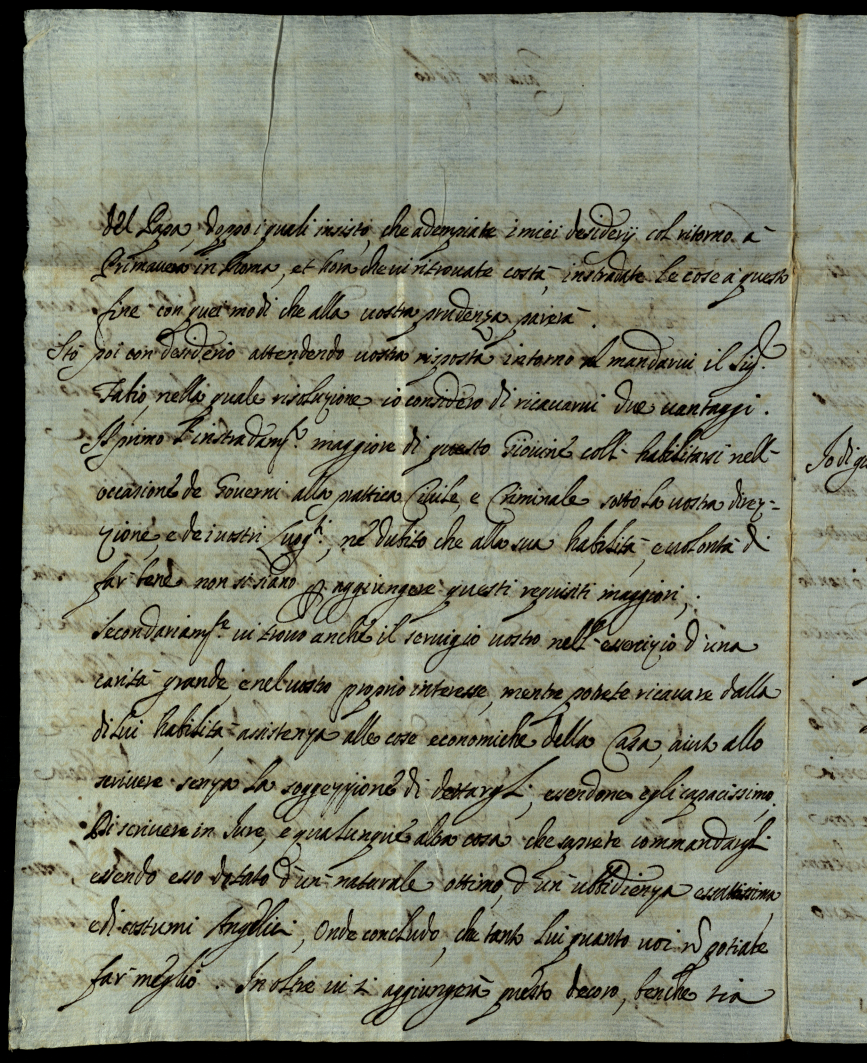 del Papa, doppo i quali insisto, che adempiate i miei desiderij col ritorno à
Primavera in Roma, et hora che vi ritrovate costà, instradate le cose à questo
fine con quei modi che alla vostra prudenza parerà.
Stò poi con desiderio attendendo vostra risposta intorno al mandarvi il Sig.r
Fabio, nella quale risoluzione io considero di ricavarvi due vantaggi.
Il primo l'instradam.to maggiore di questo Giovine coll'habilitarsi nell'
occasione de Governi alla prattica Civile, e Criminale sotto la vostra direz=
zione, e de i vostri Luog.ti, nè dubito che alla sua habilità, e volontà di
far bene non si siano p aggiungere questi requisiti maggiori;
Secondariam.te vi trovo anche il servigio vostro nell'essercizio d'una
carità grande, e nel vostro proprio interesse, mentre potrete ricavare dalla
di lui habilità, assistenza alle cose economiche della Casa, aiut allo
scrivere senza la soggezzione di dettargli, essendone egli capacissimo,
Di scrivere in Jure, e qualunque altra cosa che saprete commandargli
essendo esso dotato d'un naturale ottimo, d'un ubbidienza esattissima,
e di costumi Angelici, Onde concludo, che tanto lui quanto voi nō potiate
far meglio. Inoltre vi si aggiungerà questo decoro, benche sia
Io di